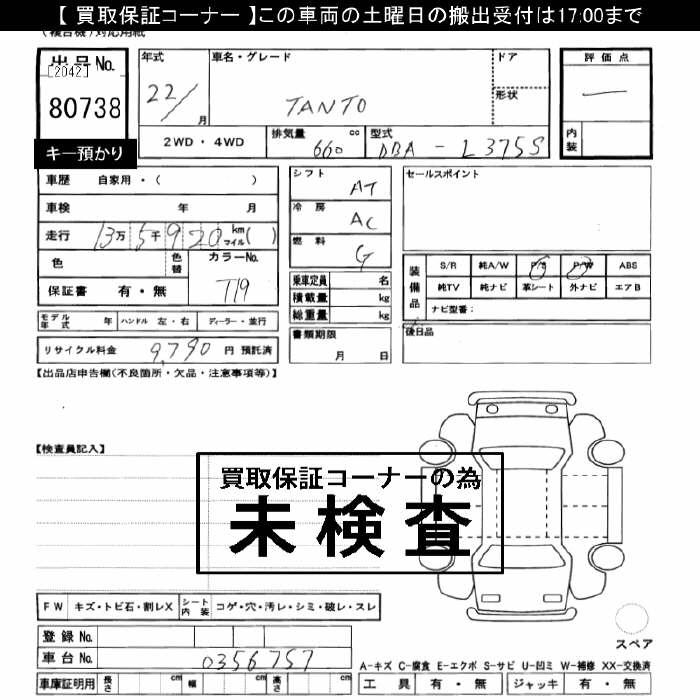 【 買取保証コーナー 】この車両の土曜日の搬出受付は17:00まで
出品No.
[2042]
80738
キー預かり
年式 車名・グレード ドア
22/月 TANTO 形状
2WD・4WD 排気量 660 cc 型式 DBA - L375S
評価点
—
内装
車歴 自家用・( )
車検 年 月
走行 13万5千920 km マイル( )
色 色替 カラーNo.
保証書 有・無 T19
モデル年式 年 ハンドル 左・右 ディーラー・並行
リサイクル料金 9,790 円 預託済
シフト AT
冷房 AC
燃料 G
乗車定員 名
積載量 kg
総重量 kg
書類期限
月 日
セールスポイント
装備品 S/R 純A/W P/S P/W ABS
純TV 純ナビ 革シート 外ナビ エアB
ナビ型番:
後日品
【出品店申告欄(不良箇所・欠品・注意事項等)】
【検査員記入】
買取保証コーナーの為
未検査
FW キズ・トビ石・割レX シート内装 コゲ・穴・汚レ・シミ・破レ・スレ
登録No.
車台No. 0356757
車庫証明用 長さ cm 幅 cm 高さ cm
スペア
A-キズ C-腐食 E-エクボ S-サビ U-凹ミ W-補修 XX-交換済
工具 有・無 ジャッキ 有・無